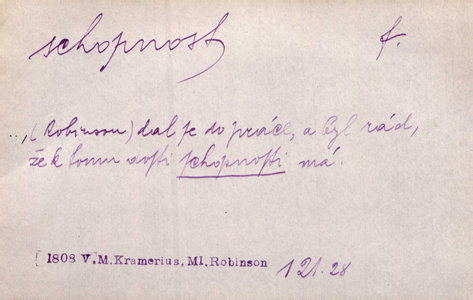 schopnost f.
„(Robinson) dal se do práce, a byl rád,
že k tomu dosti schopnosti má.
1808 V. M. Kramerius, Ml. Robinson 121.28